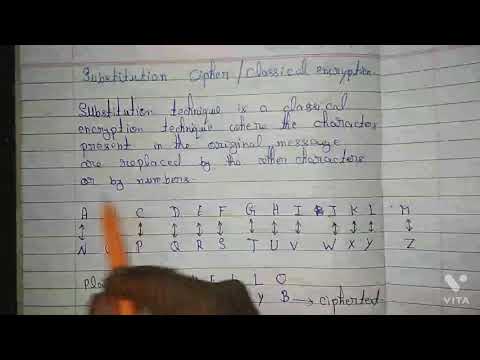 Substitution Cipher / Classical encryption
Substitution technique is a classical
encryption technique where the characters
present in the original message
are replaced by the other characters
or by numbers.
A C D E F G H I J K L M
N P Q R S T U V W X Y Z
L L O
Y B → ciphertext
VITA